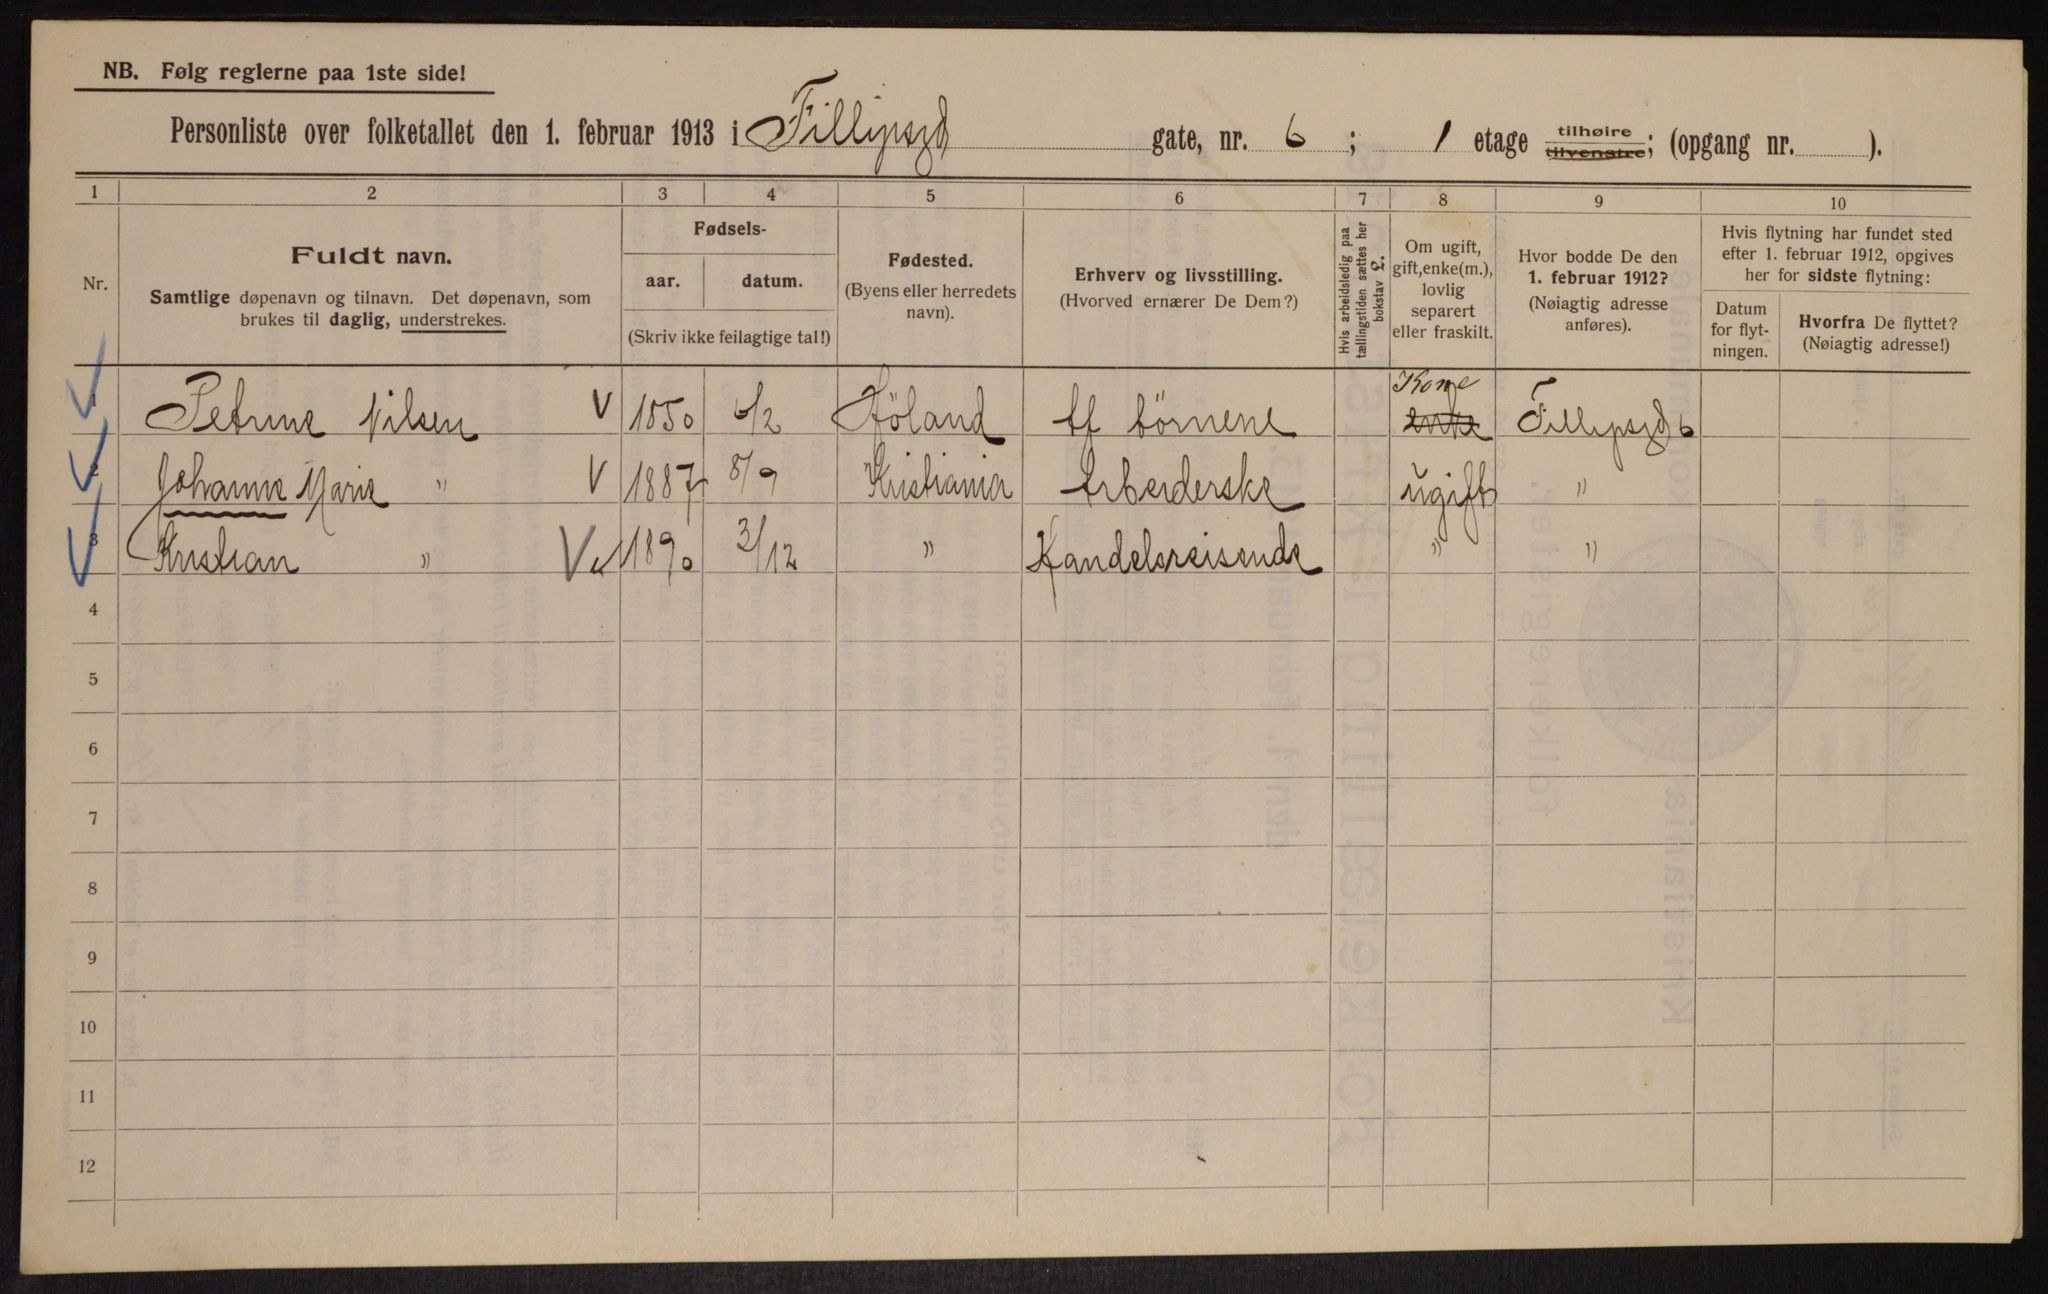 NB. Følg reglerne paa 1ste side!
Personliste over folketallet den 1. februar 1913 i Fillipsgd gate, nr. 6 ; 1 etage tilhøire tilvenstre; (opgang nr. ).
1 2 3 4 5 6 7 8 9 10
Nr.
Fuldt navn.
Samtlige døpenavn og tilnavn. Det døpenavn, som
brukes til daglig, understrekes.
Fødsels-
aar. datum.
(Skriv ikke feilagtige tal!)
Fødested.
(Byens eller herredets
navn).
Erhverv og livsstilling.
(Hvorved ernærer De Dem?)
Hvis arbeidsledig paa
tællingstiden sættes her
bokstav L.
Om ugift,
gift, enke(m.),
lovlig
separert
eller fraskilt.
Hvor bodde De den
1. februar 1912?
(Nøiagtig adresse
anføres).
Hvis flytning har fundet sted
efter 1. februar 1912, opgives
her for sidste flytning:
Datum
for flyt-
ningen.
Hvorfra De flyttet?
(Nøiagtig adresse!)
Kone
1 Petrine Nilsen V 1850 6/2 Höland Af börnene enke Fillipsgd 6
2 Johanne Marie " V 1887 8/9 Kristiania Arbeiderske ugift "
3 Kristian " V 1890 3/12 " Handelsreisende " "
4
5
6
7
8
9
10
11
12